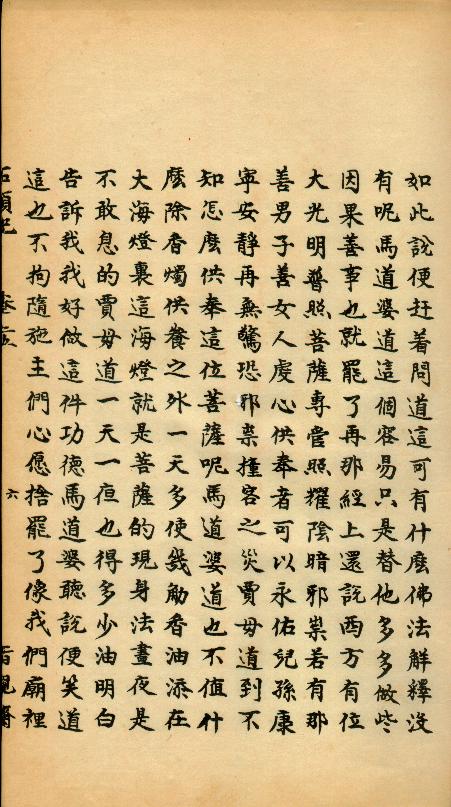 如此說便赶着問道這可有什麽佛法解釋没
有呢馬道婆道這個容易只是替他多多做些
因果善事也就罷了再那經上還説西方有位
大光明普照菩薩專管照耀陰暗邪祟若有那
善男子善女人虔心供奉者可以永佑兒孫康
寧安靜再無驚恐邪祟撞客之災賈母道到不
知怎麽供奉這位菩薩呢馬道婆道也不值什
麽除香燭供養之外一天多使幾觔香油添在
大海燈裏這海燈就是菩薩的現身法晝夜是
不敢息的賈母道一天一夜也得多少油明白
告訴我我好做這件功德馬道婆聽説便笑道
這也不拘隨施主們心愿捨罷了像我們廟裡
石頭記 卷二十五 六 脂硯齋